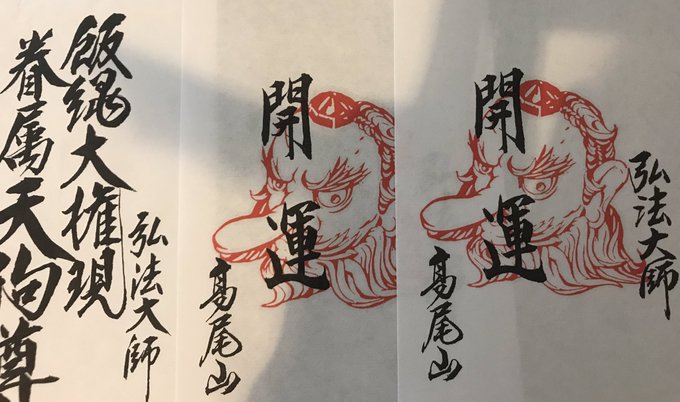 弘法大師
開運
高尾山
開運
高尾山
弘法大師
飯縄大権現
眷属天狗尊